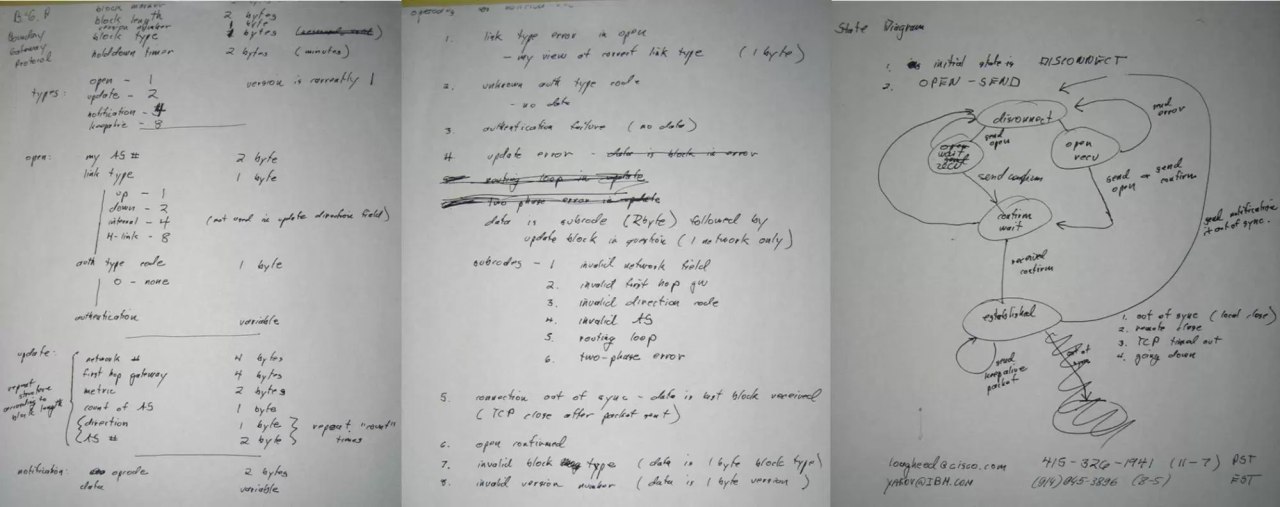 B.G.P
Boundary
Gateway
Protocol
block marker 2 bytes
block length 2 bytes
version number 1 byte
block type bytes
holdown timer 2 bytes (minutes)
version is currently 1
types:
open - 1
update - 2
notification - 4
keepalive - 8
open:
my AS # 2 byte
link type 1 byte
up - 1
down - 2
internal - 4 (not used in update direction field)
H-link - 8
auth type code 1 byte
0 - none
authentication variable
update:
repeat
structure
according to
block length
network # 4 bytes
first hop gateway 4 bytes
metric 2 bytes
count of AS 1 byte
direction 1 byte
AS # 2 byte
repeat "count"
times
notification: opcode 2 bytes
data variable
opcodes
1. link type error in open
- my view of correct link type (1 byte)
2. unknown auth type code
- no data
3. authentication failure (no data)
4. update error - data is block in error
routing loop in update
two phase error in update
data is subcode (2 byte) followed by
update block in question (1 network only)
subcodes - 1 invalid network field
2. invalid first hop gw
3. invalid direction code
4. invalid AS
5. routing loop
6. two-phase error
5. connection out of sync - data is last block received
(TCP close after packet sent)
6. open confirmed
7. invalid block type (data is 1 byte block type)
8. invalid version number (data is 1 byte version)
State Diagram
1. initial state is DISCONNECT
2. OPEN-SEND
disconnect
send
error
send
open
open
wait
sent
recv
open
recv
send confirm
send
open
send
confirm
confirm
wait
send notification
if out of sync.
received
confirm
established
1. out of sync (local close)
2. remote close
3. TCP timed out
4. going down
send
keepalive
packet
out of
sync
lougheed@cisco.com 415-326-1941 (11-7) PST
YAKOV@IBM.COM (914) 945-3896 (8-5) EST